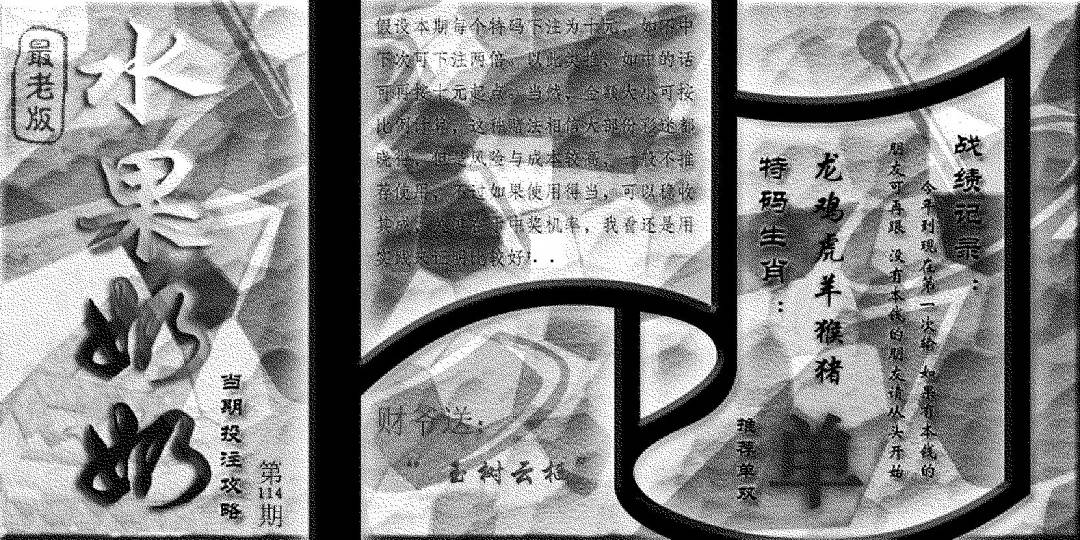 最老版
水果奶奶
当期投注攻略
第114期
假设本期每个特码下注为十元，如不中
下次可下注两倍，以此类推，如中的话
可再按十元起点，当然，金额大小可按
比例注销，这种赌法相信大部份彩迷都
晓得，但是风险与成本较高，一般不推
荐使用，不过如果使用得当，可以稳收
其成，
中奖机率，我看还是用
比较好！..
财爷送：
“玉树云栖”
特码生肖：
龙鸡虎羊猴猪
推荐单双
单
战绩记录：
今年到现在第一次输 如果有本钱的
朋友可再跟 没有本钱的朋友请从头开始